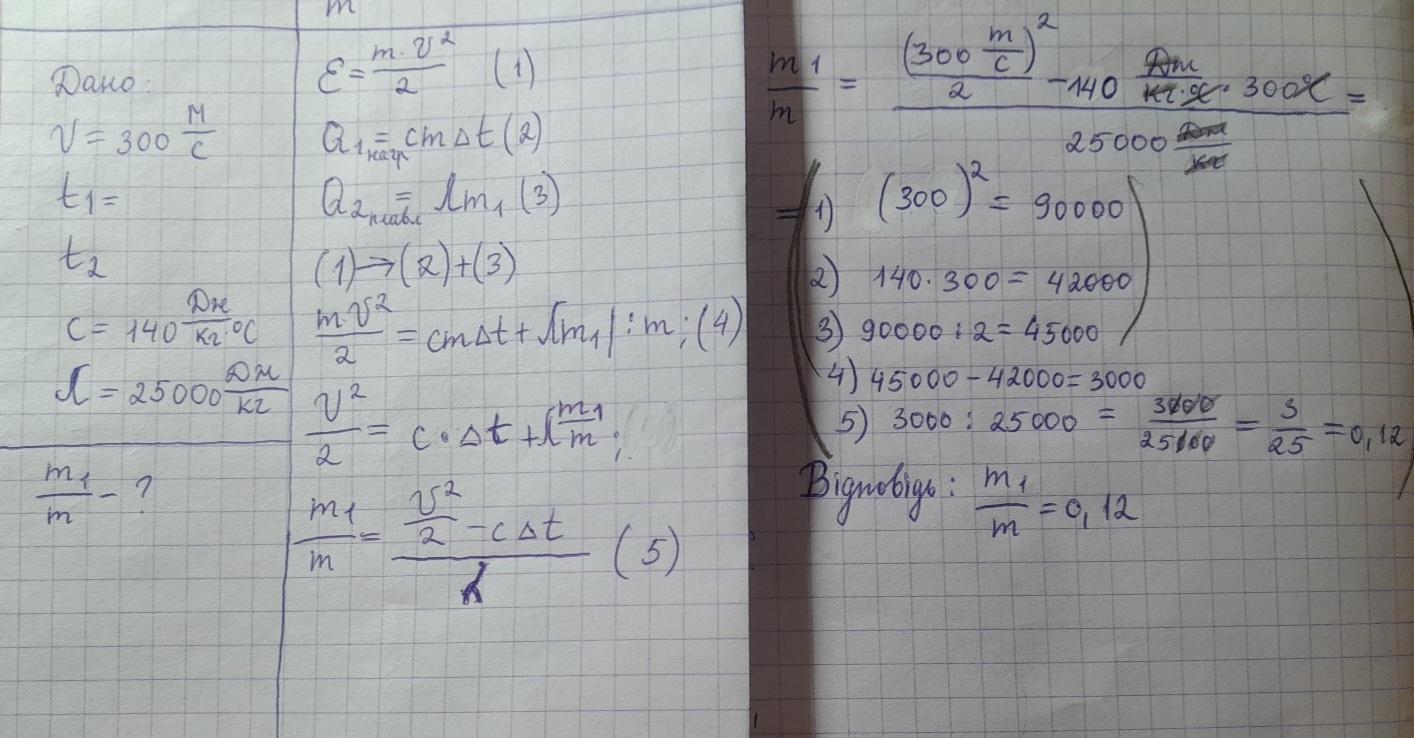 m
Дано:
V = 300 м/с
t1 =
t2
C = 140 Дж/кг·°C
λ = 25000 Дж/кг
m1/m - ?
E = m·V²/2 (1)
Q1нагр = cmΔt (2)
Q2плавл = λm1 (3)
(1)→(2)+(3)
mV²/2 = cmΔt + λm1 |:m; (4)
V²/2 = c·Δt + λ m1/m;
m1/m = (V²/2 - cΔt)/λ (5)
m1/m = ((300 m/c)²/2 - 140 Дж/кг·°C · 300°C)/(25000 Дж/кг) =
= (1) (300)² = 90000)
2) 140·300 = 42000
3) 90000:2 = 45000
4) 45000 - 42000 = 3000
5) 3000 : 25000 = 3000/25000 = 3/25 = 0,12)
Відповідь: m1/m = 0,12